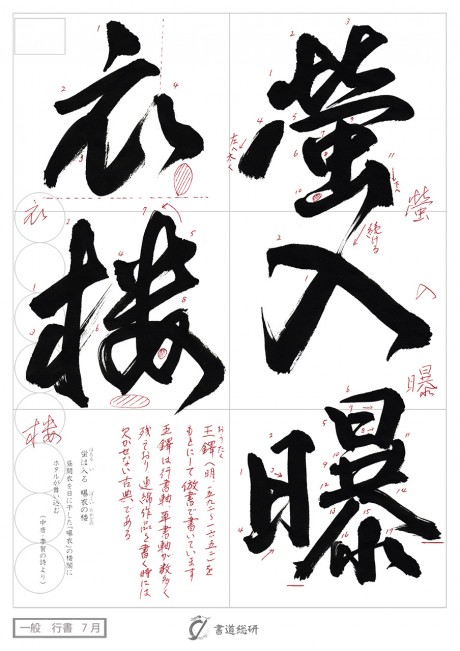 螢入曝
衣楼
続ける
螢
入
曝
衣
楼
王鐸(明・一五九二〜一六五二)を
もとにして倣書で書いています
王鐸は行書軸・草書軸が数多く
残っており連綿作品を書く時には
欠かせない古典である
蛍は入る 曝衣の楼
昼間衣を日に干した「曝衣」の楼閣に
ホタルが舞い込む
(中唐・李賀の詩より)
一般 行書 7月
書道総研